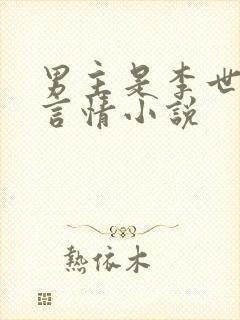 男主是李世
言情小説
熱依木